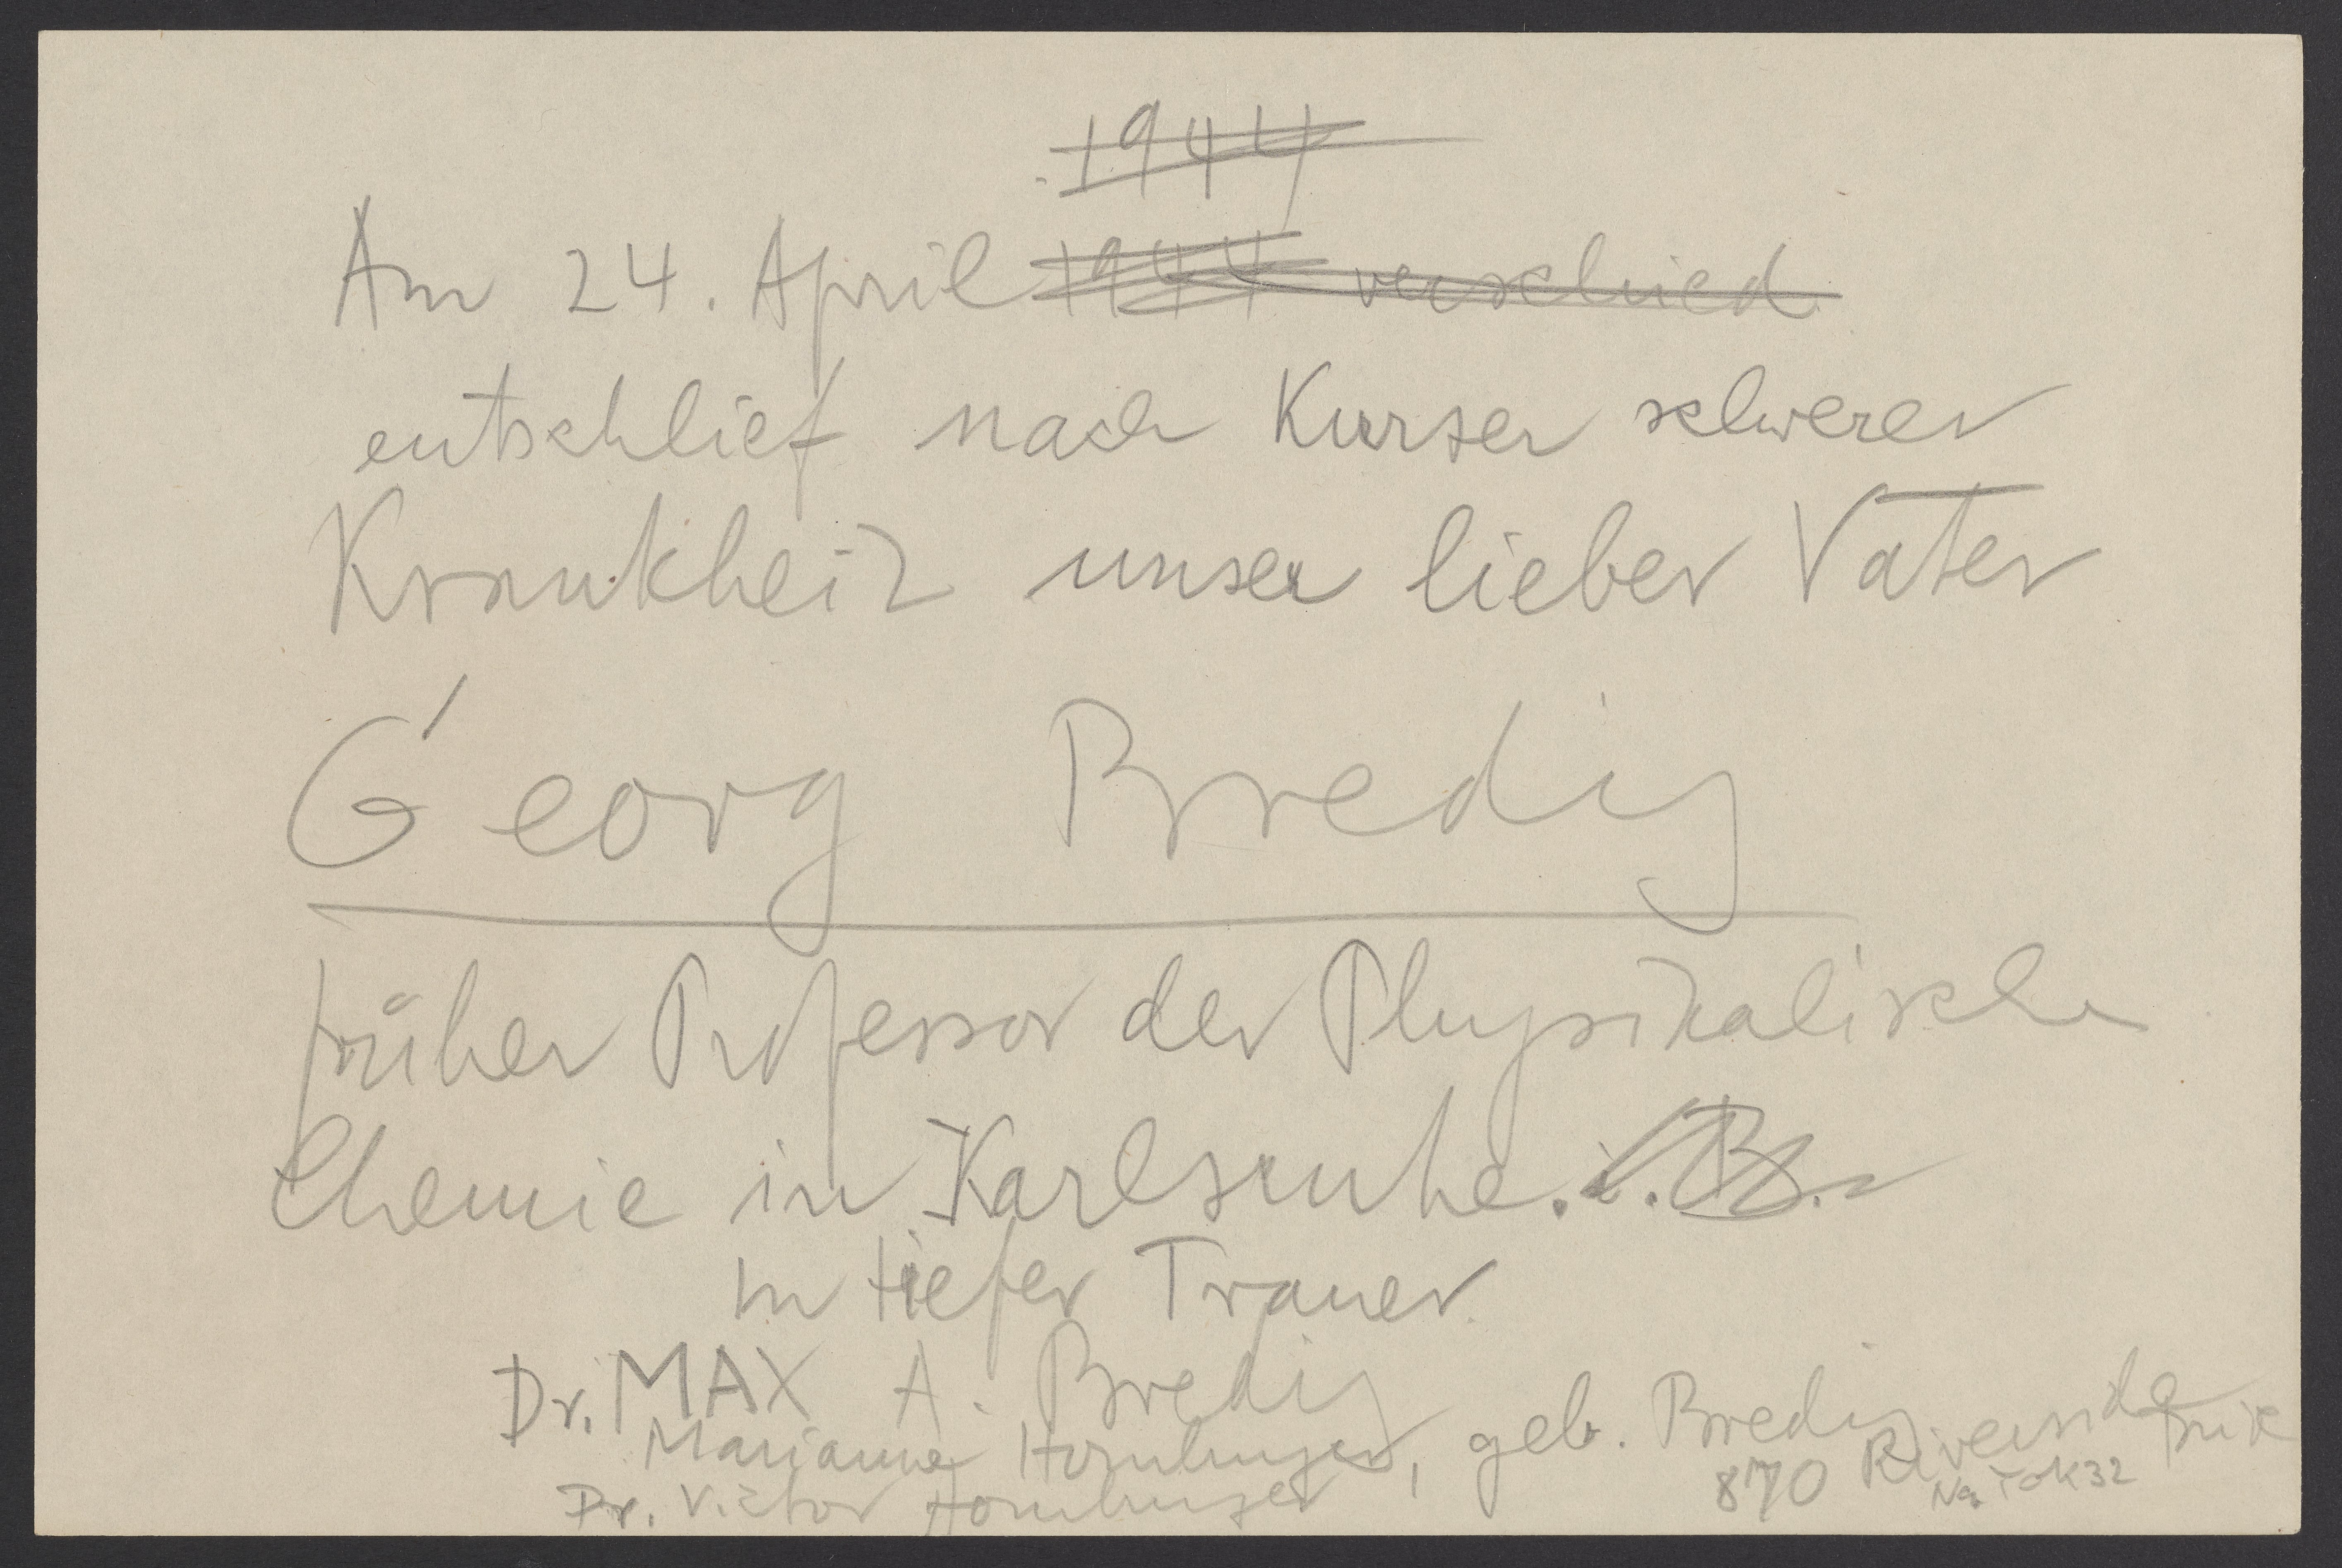 1944
Am 24. April 1944 verschied
entschlief nach Kurzer schwerer
Krankheit unser lieber Vater
Georg Bredig
früher Professor der Physikalische
Chemie in Karlsruhe. i. B.
in tiefer Trauer
Dr. MAX A. Bredig
Marianne Homburger, geb. Bredig
Dr. Victor Homburger
870 Riverside Drive
New York 32